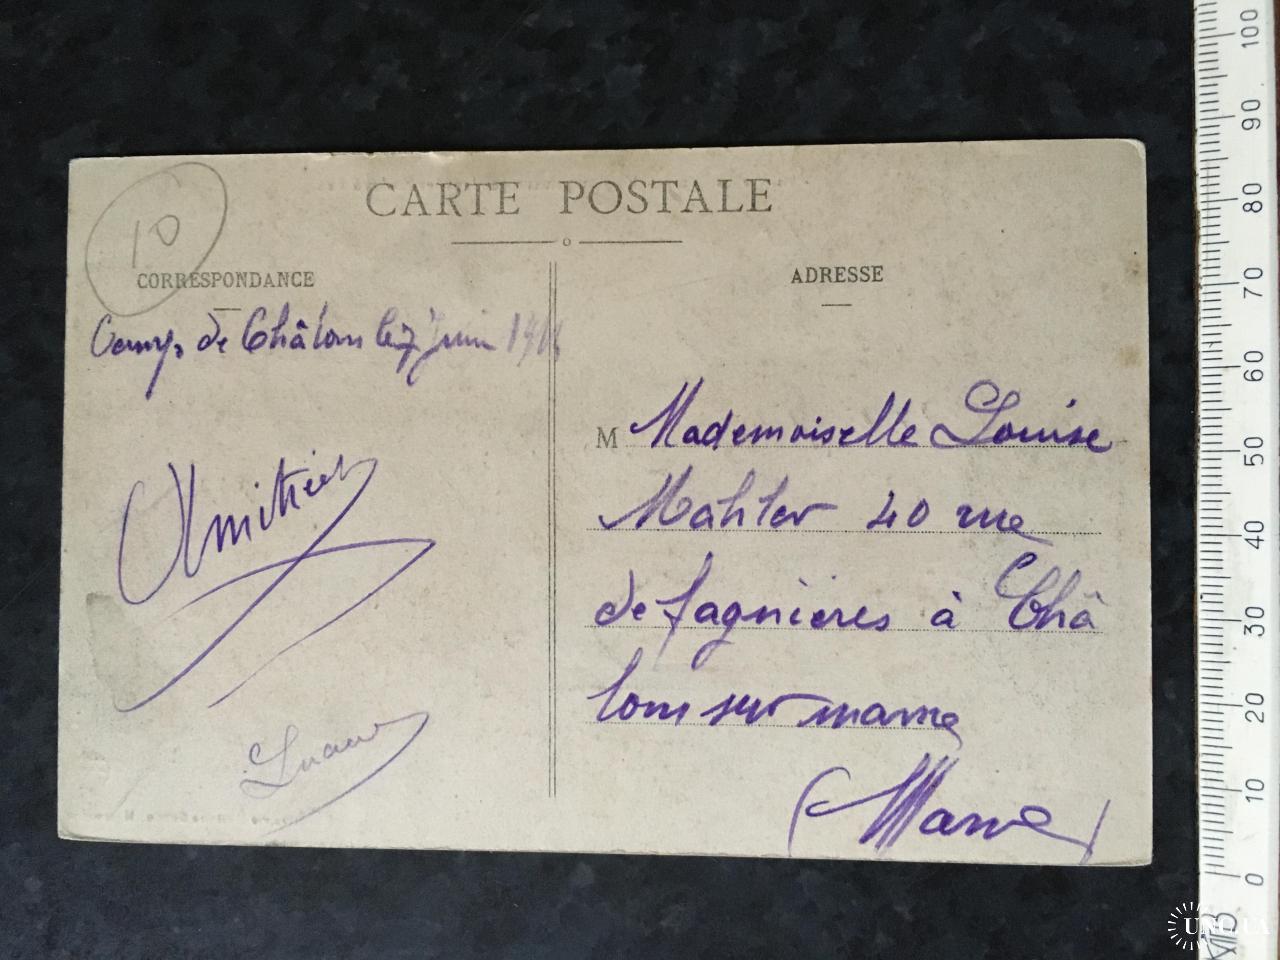 CARTE POSTALE
10
CORRESPONDANCE
ADRESSE
Camp de Châlons le 7 Juin
M Mademoiselle Louise
Mahler 40 rue
de fagnières à Châ
lons sur marne
(Marne)
0 10 20 30 40 50 60 70 80 90 100
UNC.UA